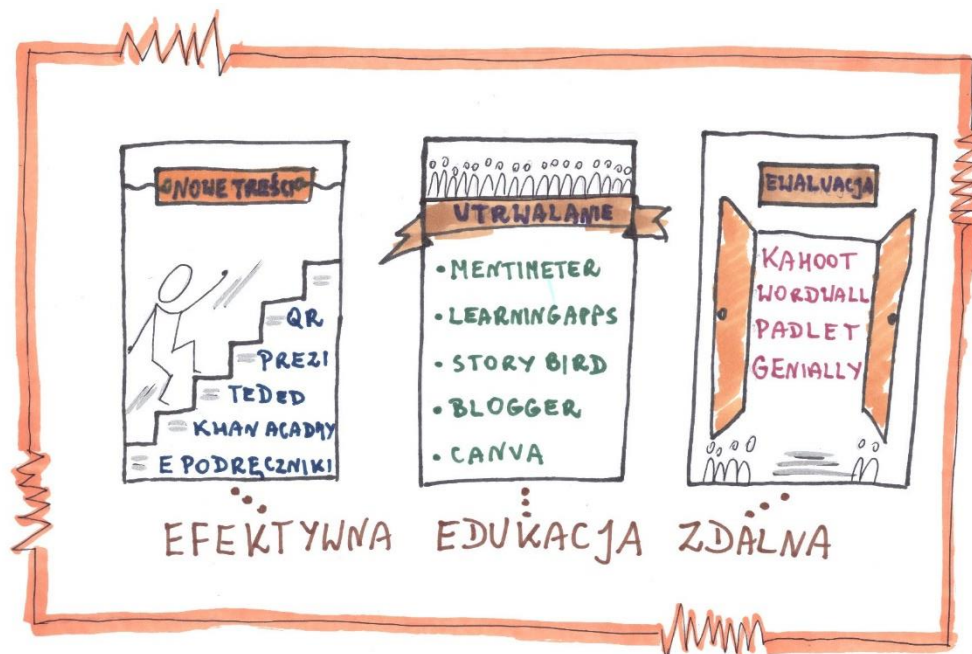 NOWE TREŚCI
QR
PREZI
TEDED
KHAN ACADMY
E PODRĘCZNIKI
UTRWALANIE
• MENTIMETER
• LEARNINGAPPS
• STORY BIRD
• BLOGGER
• CANVA
EWALVACJA
KAHOOT
WORDWALL
PADLET
GENIALLY
EFEKTYWNA EDUKACJA ZDALNA